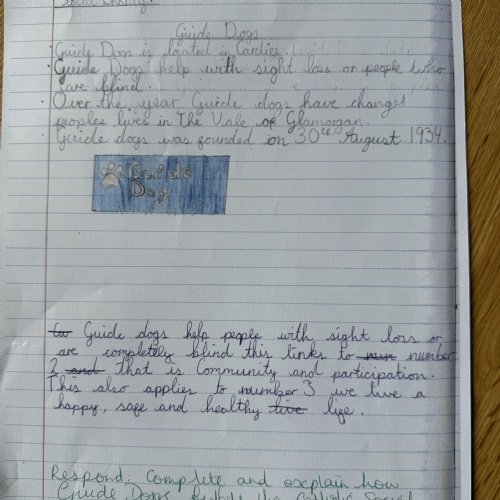 Guide Dogs
· Guide Dogs is located in Cardiff.
· Guide Dogs help with sight loss or people who
are blind.
· Over the year Guide dogs have changed
peoples lives in The Vale of Glamorgan.
Guide dogs was founded on 30th August 1934.
Guide
Dog
Guide dogs help people with sight loss or
are completely blind this links to number
2 and that is Community and participation.
This also applies to number 3 we live a
happy, safe and healthy live life.
Respond: Complete and explain how
Guide Dogs the Catholic Social